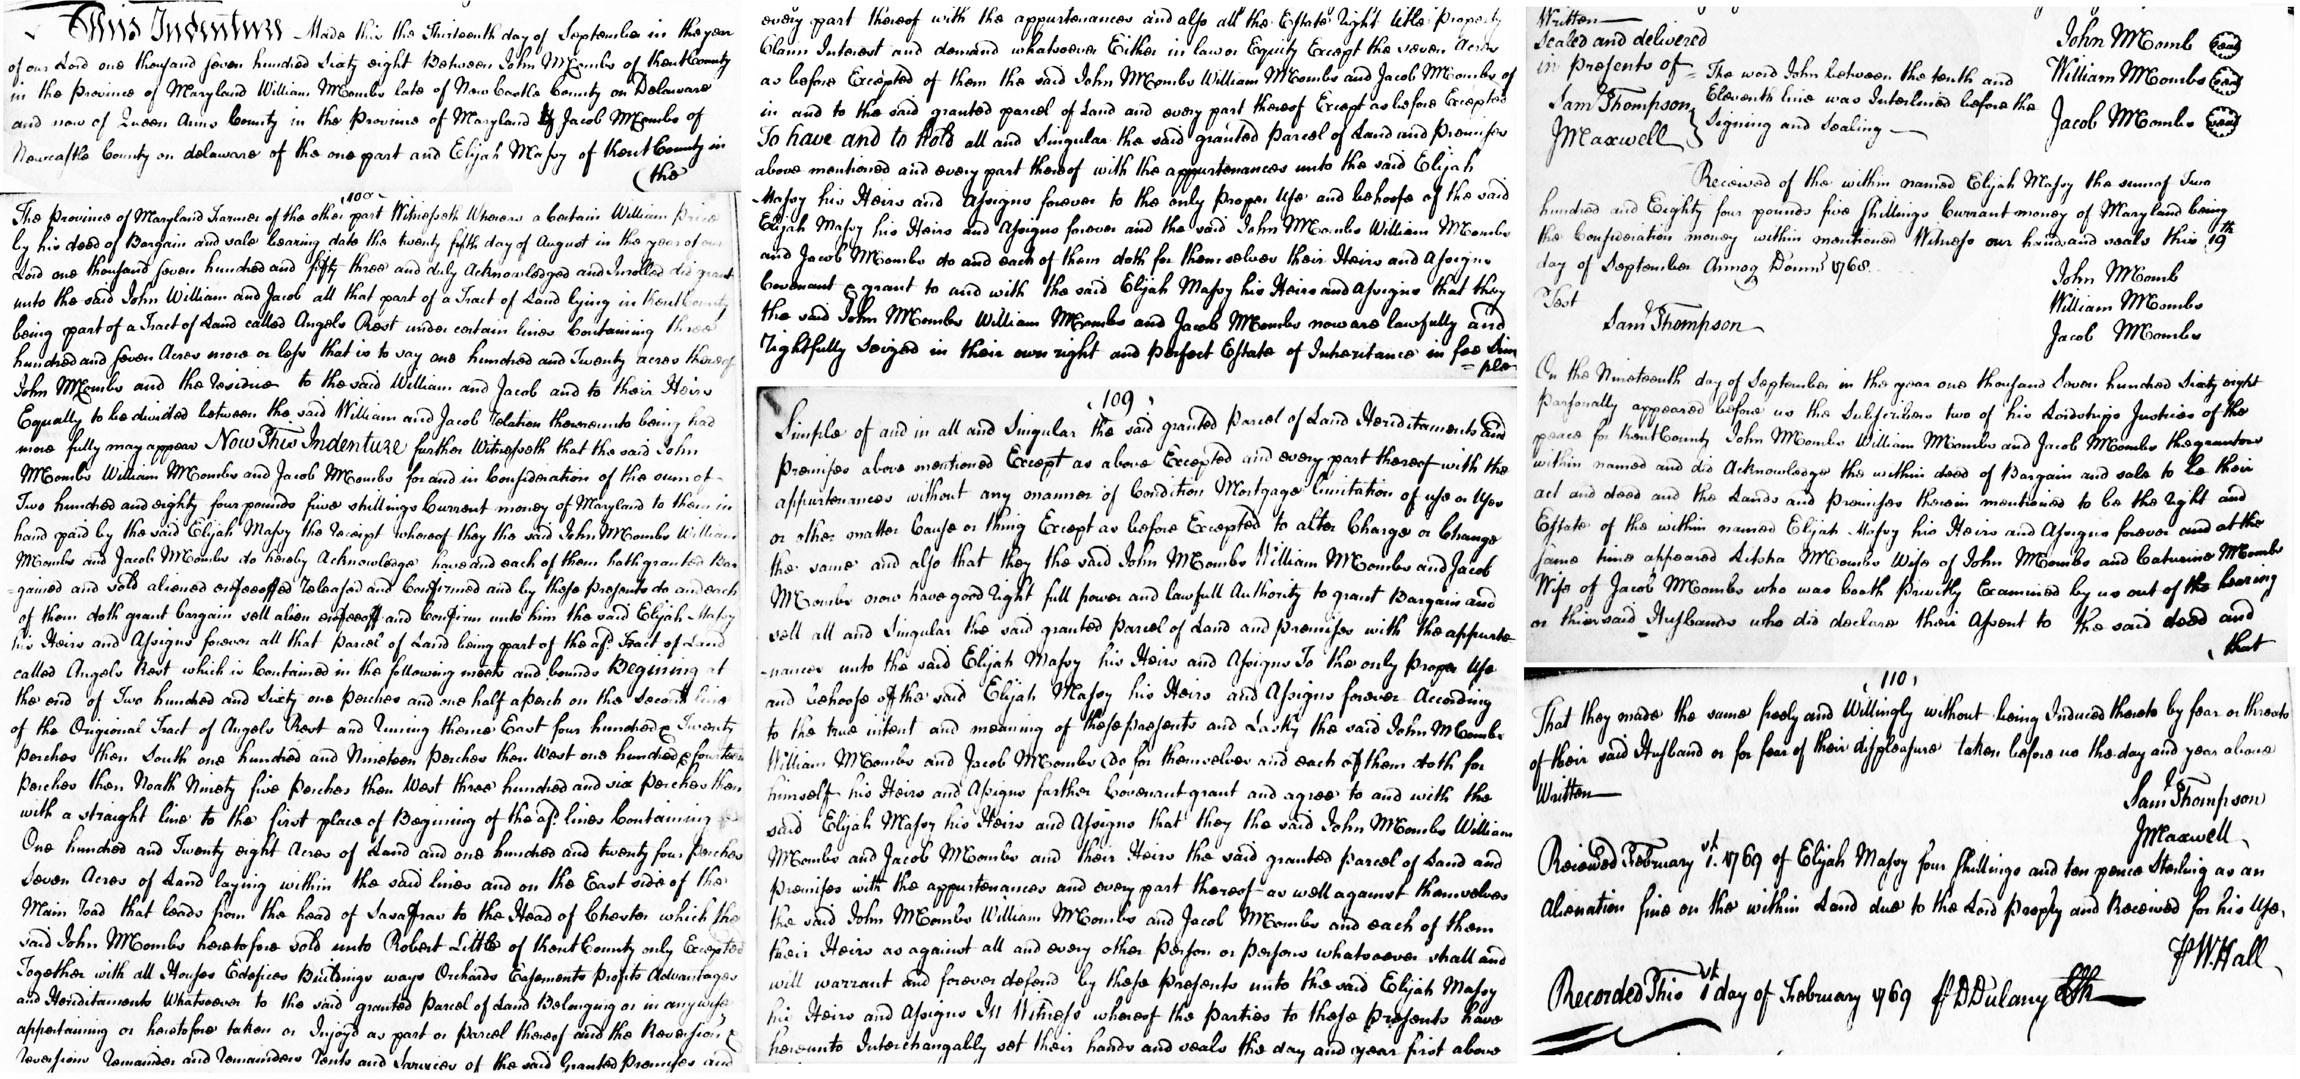 This Indenture Made this the Thirteenth day of September in the year
of our Lord one thousand seven hundred Sixty eight Between John McCombs of Kent County
in the Province of Maryland William McCombs late of New Castle County on Delaware
and now of Queen Anns County in the Province of Maryland & Jacob McCombs of
Newcastle County on delaware of the one part and Elijah Massy of Kent County in
(the
108
The Province of Maryland Farmer of the other part Witnesseth Whereas a Certain William Price
by his deed of Bargain and sale bearing date the twenty fifth day of August in the year of our
Lord one thousand seven hundred and fifty three and duly Acknowledged and Inrolled did grant
unto the said John William and Jacob all that part of a Tract of Land lying in Kent County
being part of a Tract of Land called Angels Rest under certain lines Containing three
hundred and seven Acres more or less that is to say one hundred and Twenty acres thereof
John McCombs and the residue to the said William and Jacob and to their Heirs
Equally to be divided between the said William and Jacob relation thereunto being had
more fully may appear Now This Indenture further Witnesseth that the said John
McCombs William McCombs and Jacob McCombs for and in Consideration of the sum of
Two hundred and eighty four pounds five shillings Current money of Maryland to them in
hand paid by the said Elijah Massy the receipt whereof they the said John McCombs William
McCombs and Jacob McCombs do hereby Acknowledge have and each of them hath granted Bar
=gained and sold aliened enfeoffed released and Confirmed and by these Presents do and each
of them doth grant bargain sell alien enfeoff and Confirm unto him the said Elijah Massy
his Heirs and Assigns forever all that Parcel of Land being part of the afd. Tract of Land
called Angels Rest which is Contained in the following meets and bounds Begining at
the end of Two hundred and Sixty one perches and one half a perch on the second line
of the Origional Tract of Angels Rest and runing thence East four hundred & Twenty
perches then South one hundred and Nineteen perches then West one hundred & fourteen
perches then Noath Ninety five perches then West three hundred and six perches then
with a straight line to the first place of Begining of the afd. lines Containing
One hundred and Twenty eight Acres of Land and one hundred and twenty four perches
Seven Acres of Land laying within the said lines and on the East side of the
Main road that leads from the head of Sasafras to the Head of Chester which the
said John McCombs heretofore sold unto Robert Little of Kent County only Excepted
Together with all Houses Edefices Buildings ways Orchards Easements Profits Advantages
and Heriditaments Whatsoever to the said granted parcel of Land Belonging or in any wise
appertaining or heretofore taken or Injoyd as part or Parcel thereof and the Reversion &
reversions remainder and remainders rents and Services of the said Granted Premises and
every part thereof with the appurtenances and also all the Estate right title property
Claim Interest and demand whatsoever Either in law or Equity Except the seven Acres
as before Excepted of them the said John McCombs William McCombs and Jacob McCombs of
in and to the said granted parcel of Land and every part thereof Except as before Excepted
To have and to hold all and Singular the said granted Parcel of Land and Premises
above mentioned and every part thereof with the appurtenances unto the said Elijah
Massy his Heirs and Assigns forever to the only proper Use and behoofe of the said
Elijah Massy his Heirs and Assigns forever and the said John McCombs William McCombs
and Jacob McCombs do and each of them doth for themselves their Heirs and Assigns
Covenant & grant to and with the said Elijah Massy his Heirs and Assigns that they
the said John McCombs William McCombs and Jacob McCombs now are lawfully and
rightfully Seized in their own right and perfect Estate of Inheritance in fee Sim
=ple
109
Simple of and in all and Singular the said granted parcel of Land Heriditaments and
premises above mentioned Except as above Excepted and every part thereof with the
appurtenances without any manner of Condition Mortgage limitation of use or Uses
or other matter Cause or thing Except as before Excepted to alter Charge or Change
the same and also that they the said John McCombs William McCombs and Jacob
McCombs now have good right full power and lawfull Authority to grant Bargain and
sell all and Singular the said granted parcel of Land and premises with the appurte
-nances unto the said Elijah Massy his Heirs and Assigns To the only proper Use
and behoofe of the said Elijah Massy his Heirs and Assigns forever According
to the true intent and meaning of these presents and Lastly the said John McCombs
William McCombs and Jacob McCombs do for themselves and each of them doth for
himself his Heirs and Assigns farther Covenant grant and agree to and with the
said Elijah Massy his Heirs and Assigns that they the said John McCombs William
McCombs and Jacob McCombs and their Heirs the said granted parcel of Land and
premises with the appurtenances and every part thereof as well against themselves
the said John McCombs William McCombs and Jacob McCombs and each of them
their Heirs as against all and every other person or persons whatsoever shall and
will warrant and forever defend by these presents unto the said Elijah Massy
his Heirs and Assigns In Witness whereof the parties to these presents have
hereunto Interchangably set their hands and seals the day and year first above
Written
Sealed and delivered
in presents of
Sam Thompson
JMaxwell
The word John between the tenth and
Eleventh line was Interlined before the
Signing and Sealing
John McComb seal
William McCombs seal
Jacob McCombs seal
Received of the within named Elijah Massy the sum of Two
hundred and Eighty four pounds five shillings Currant money of Maryland being
the Consideration money within mentioned Witness our hands and seals this 19th
day of September Annoq Domni 1768
John McComb
William McCombs
Jacob McCombs
Test
Sam Thompson
On the Nineteenth day of September in the year one thousand Seven hundred Sixty eight
parsonally appeared before us the Subscribers two of his Lordships Justices of the
peace for Kent County John McCombs William McCombs and Jacob McCombs the grantors
within named and did Acknowledge the within deed of Bargain and sale to be their
act and deed and the Lands and premises therein mentioned to be the right and
Estate of the within named Elijah Massy his Heirs and Assigns forever and at the
same time appeared Litsha McCombs Wife of John McCombs and Caturine McCombs
Wife of Jacob McCombs who was booth privitly Examined by us out of the hearing
or thier said Husbands who did declare their Assent to the said deed and
(that
110
That they made the same freely and Willingly without being Induced thereto by fear or threats
of their said Husband or for fear of their displeasure taken before us the day and year above
Written
Sam Thompson
JMaxwell
Reciewed February 1st. 1769 of Elijah Massy four shillings and ten pence Sterling as an
Alienation fine on the within Land due to the Lord Propty and Received for his Use
P W. Hall
Recorded This 1st day of February 1769 P D Dulany Clk